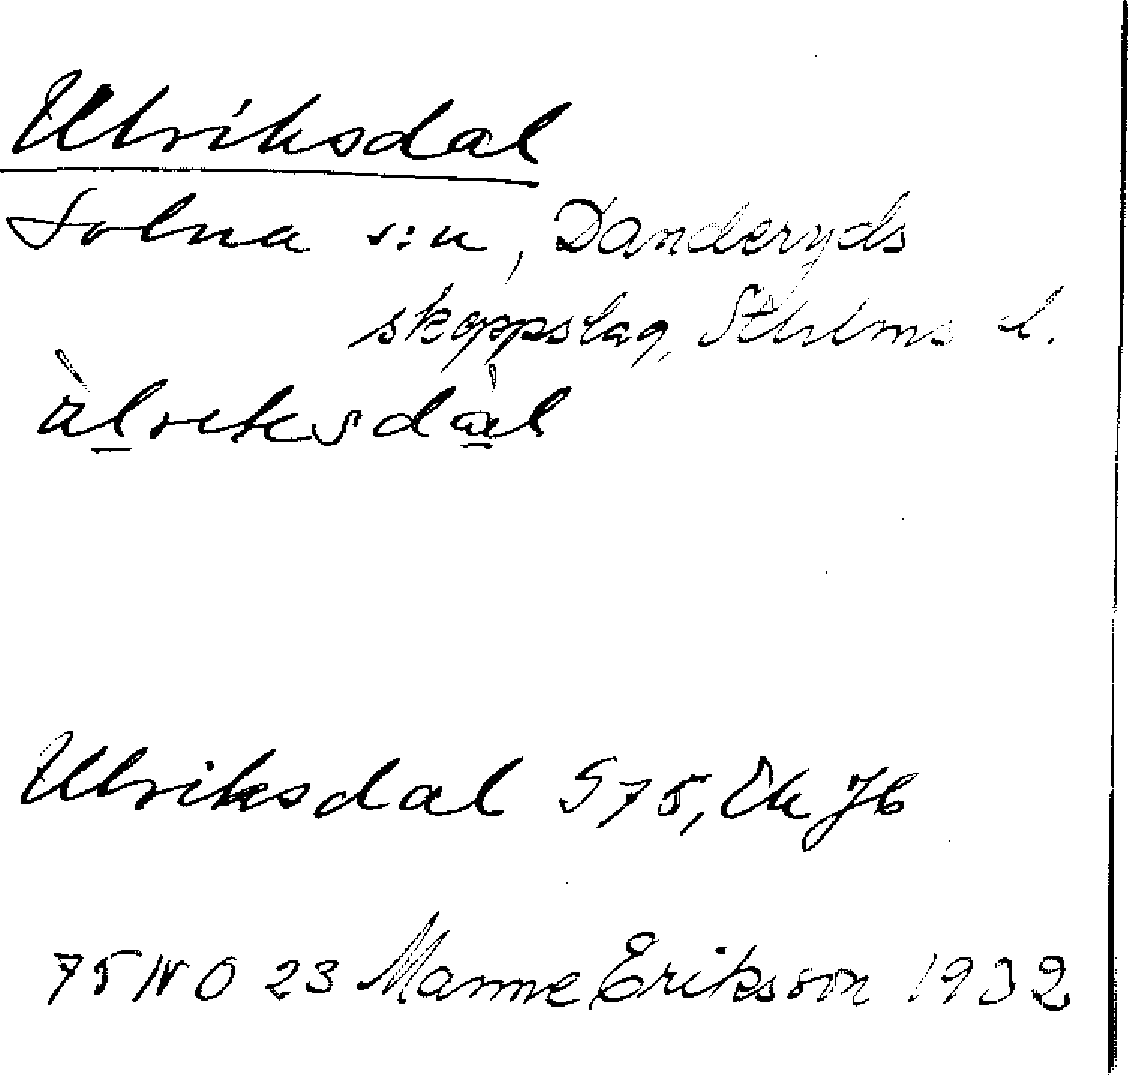 Ulriksdal
Solna s:n, Danderyds
skeppslag, Sthlms l.
ὰlreksdàl
Ulriksdal S 75, Ek Jb
75 NO 23 Manne Eriksson 1932